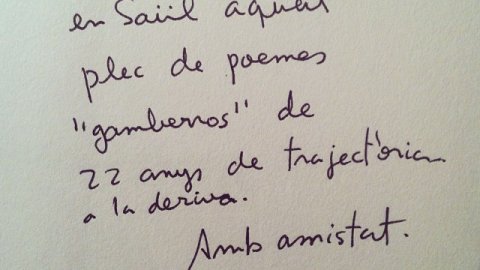 en Saül aquest
plec de poemes
"gamberros" de
22 anys de trajectòria
a la deriva.
Amb amistat.